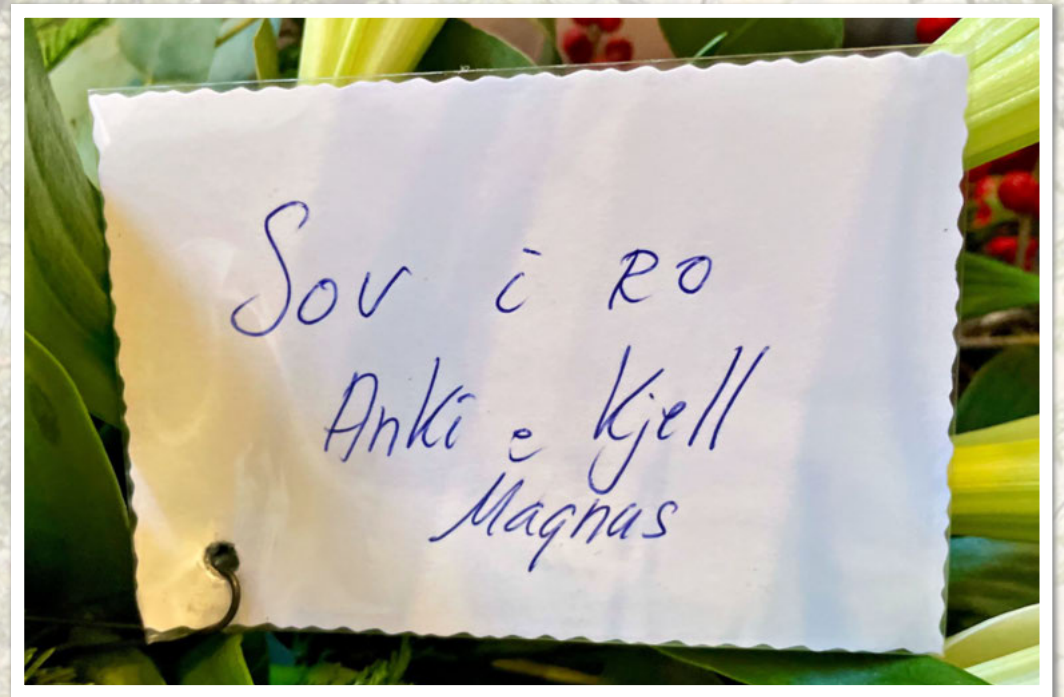 Sov i RO
Anki o Kjell
Magnus